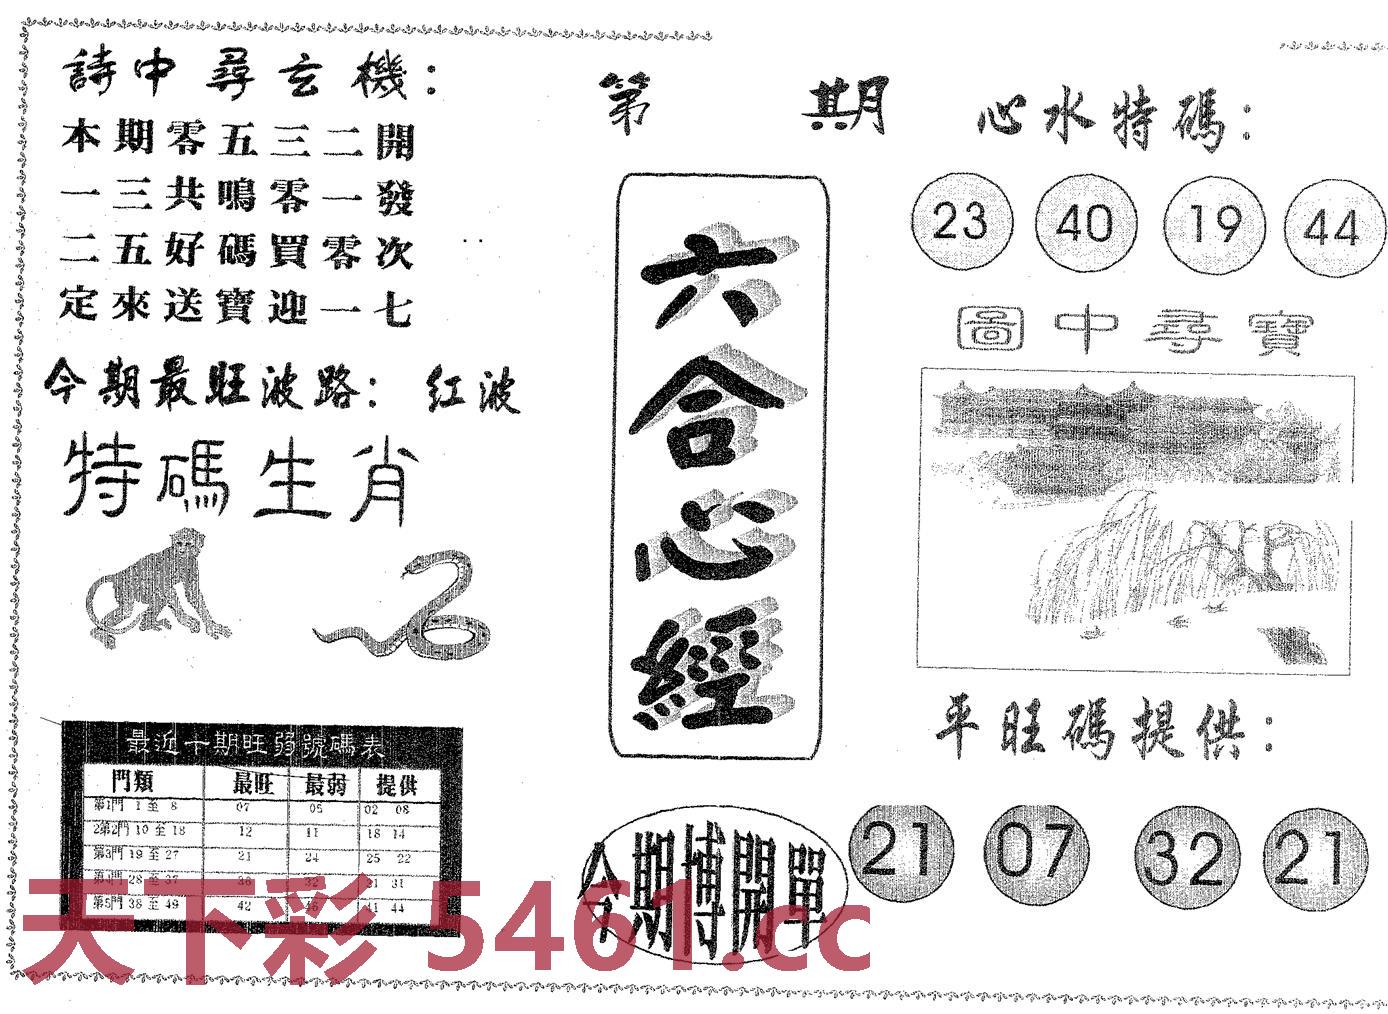 詩中尋玄機：
本期零五三二開
一三共鳴零一發
二五好碼買零次
定來送寶迎一七
今期最旺波路：紅波
特碼生肖
最近十期旺弱號碼表
門類 最旺 最弱 提供
第1門 1 至 8 07 05 02 08
2第2門 10 至 18 12 11 18 14
第3門 19 至 27 21 24 25 22
第4門 28 至 37 36 32 31
第5門 38 至 49 42 46 41 44
第 期
六合心經
今期博開單
心水特碼：
23 40 19 44
圖中尋寶
平旺碼提供：
21 07 32 21
天下彩 5461.cc